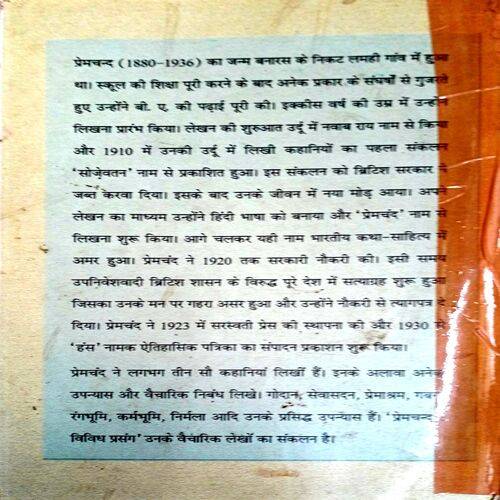 प्रेमचन्द (1880-1936) का जन्म बनारस के निकट लमही गांव में हुआ
था। स्कूल की शिक्षा पूरी करने के बाद अनेक प्रकार के संघर्षों से गुजरते
हुए उन्होंने बी. ए. की पढ़ाई पूरी की। इक्कीस वर्ष की उम्र में उन्होंने
लिखना प्रारंभ किया। लेखन की शुरुआत उर्दू में नवाब राय नाम से किया
और 1910 में उनकी उर्दू में लिखी कहानियों का पहला संकलन
‘सोज़ेवतन’ नाम से प्रकाशित हुआ। इस संकलन को ब्रिटिश सरकार ने
जब्त करवा दिया। इसके बाद उनके जीवन में नया मोड़ आया। अपने
लेखन का माध्यम उन्होंने हिंदी भाषा को बनाया और ‘प्रेमचंद’ नाम से
लिखना शुरू किया। आगे चलकर यही नाम भारतीय कथा-साहित्य में
अमर हुआ। प्रेमचंद ने 1920 तक सरकारी नौकरी की। इसी समय
उपनिवेशवादी ब्रिटिश शासन के विरुद्ध पूरे देश में सत्याग्रह शुरू हुआ
जिसका उनके मन पर गहरा असर हुआ और उन्होंने नौकरी से त्यागपत्र दे
दिया। प्रेमचंद ने 1923 में सरस्वती प्रेस की स्थापना की और 1930 में
‘हंस’ नामक ऐतिहासिक पत्रिका का संपादन प्रकाशन शुरू किया।
प्रेमचंद ने लगभग तीन सौ कहानियां लिखीं हैं। इनके अलावा अनेक
उपन्यास और वैचारिक निबंध लिखे। गोदान, सेवासदन, प्रेमाश्रम, गबन
रंगभूमि, कर्मभूमि, निर्मला आदि उनके प्रसिद्ध उपन्यास हैं। ‘प्रेमचन्द
विविध प्रसंग’ उनके वैचारिक लेखों का संकलन है।